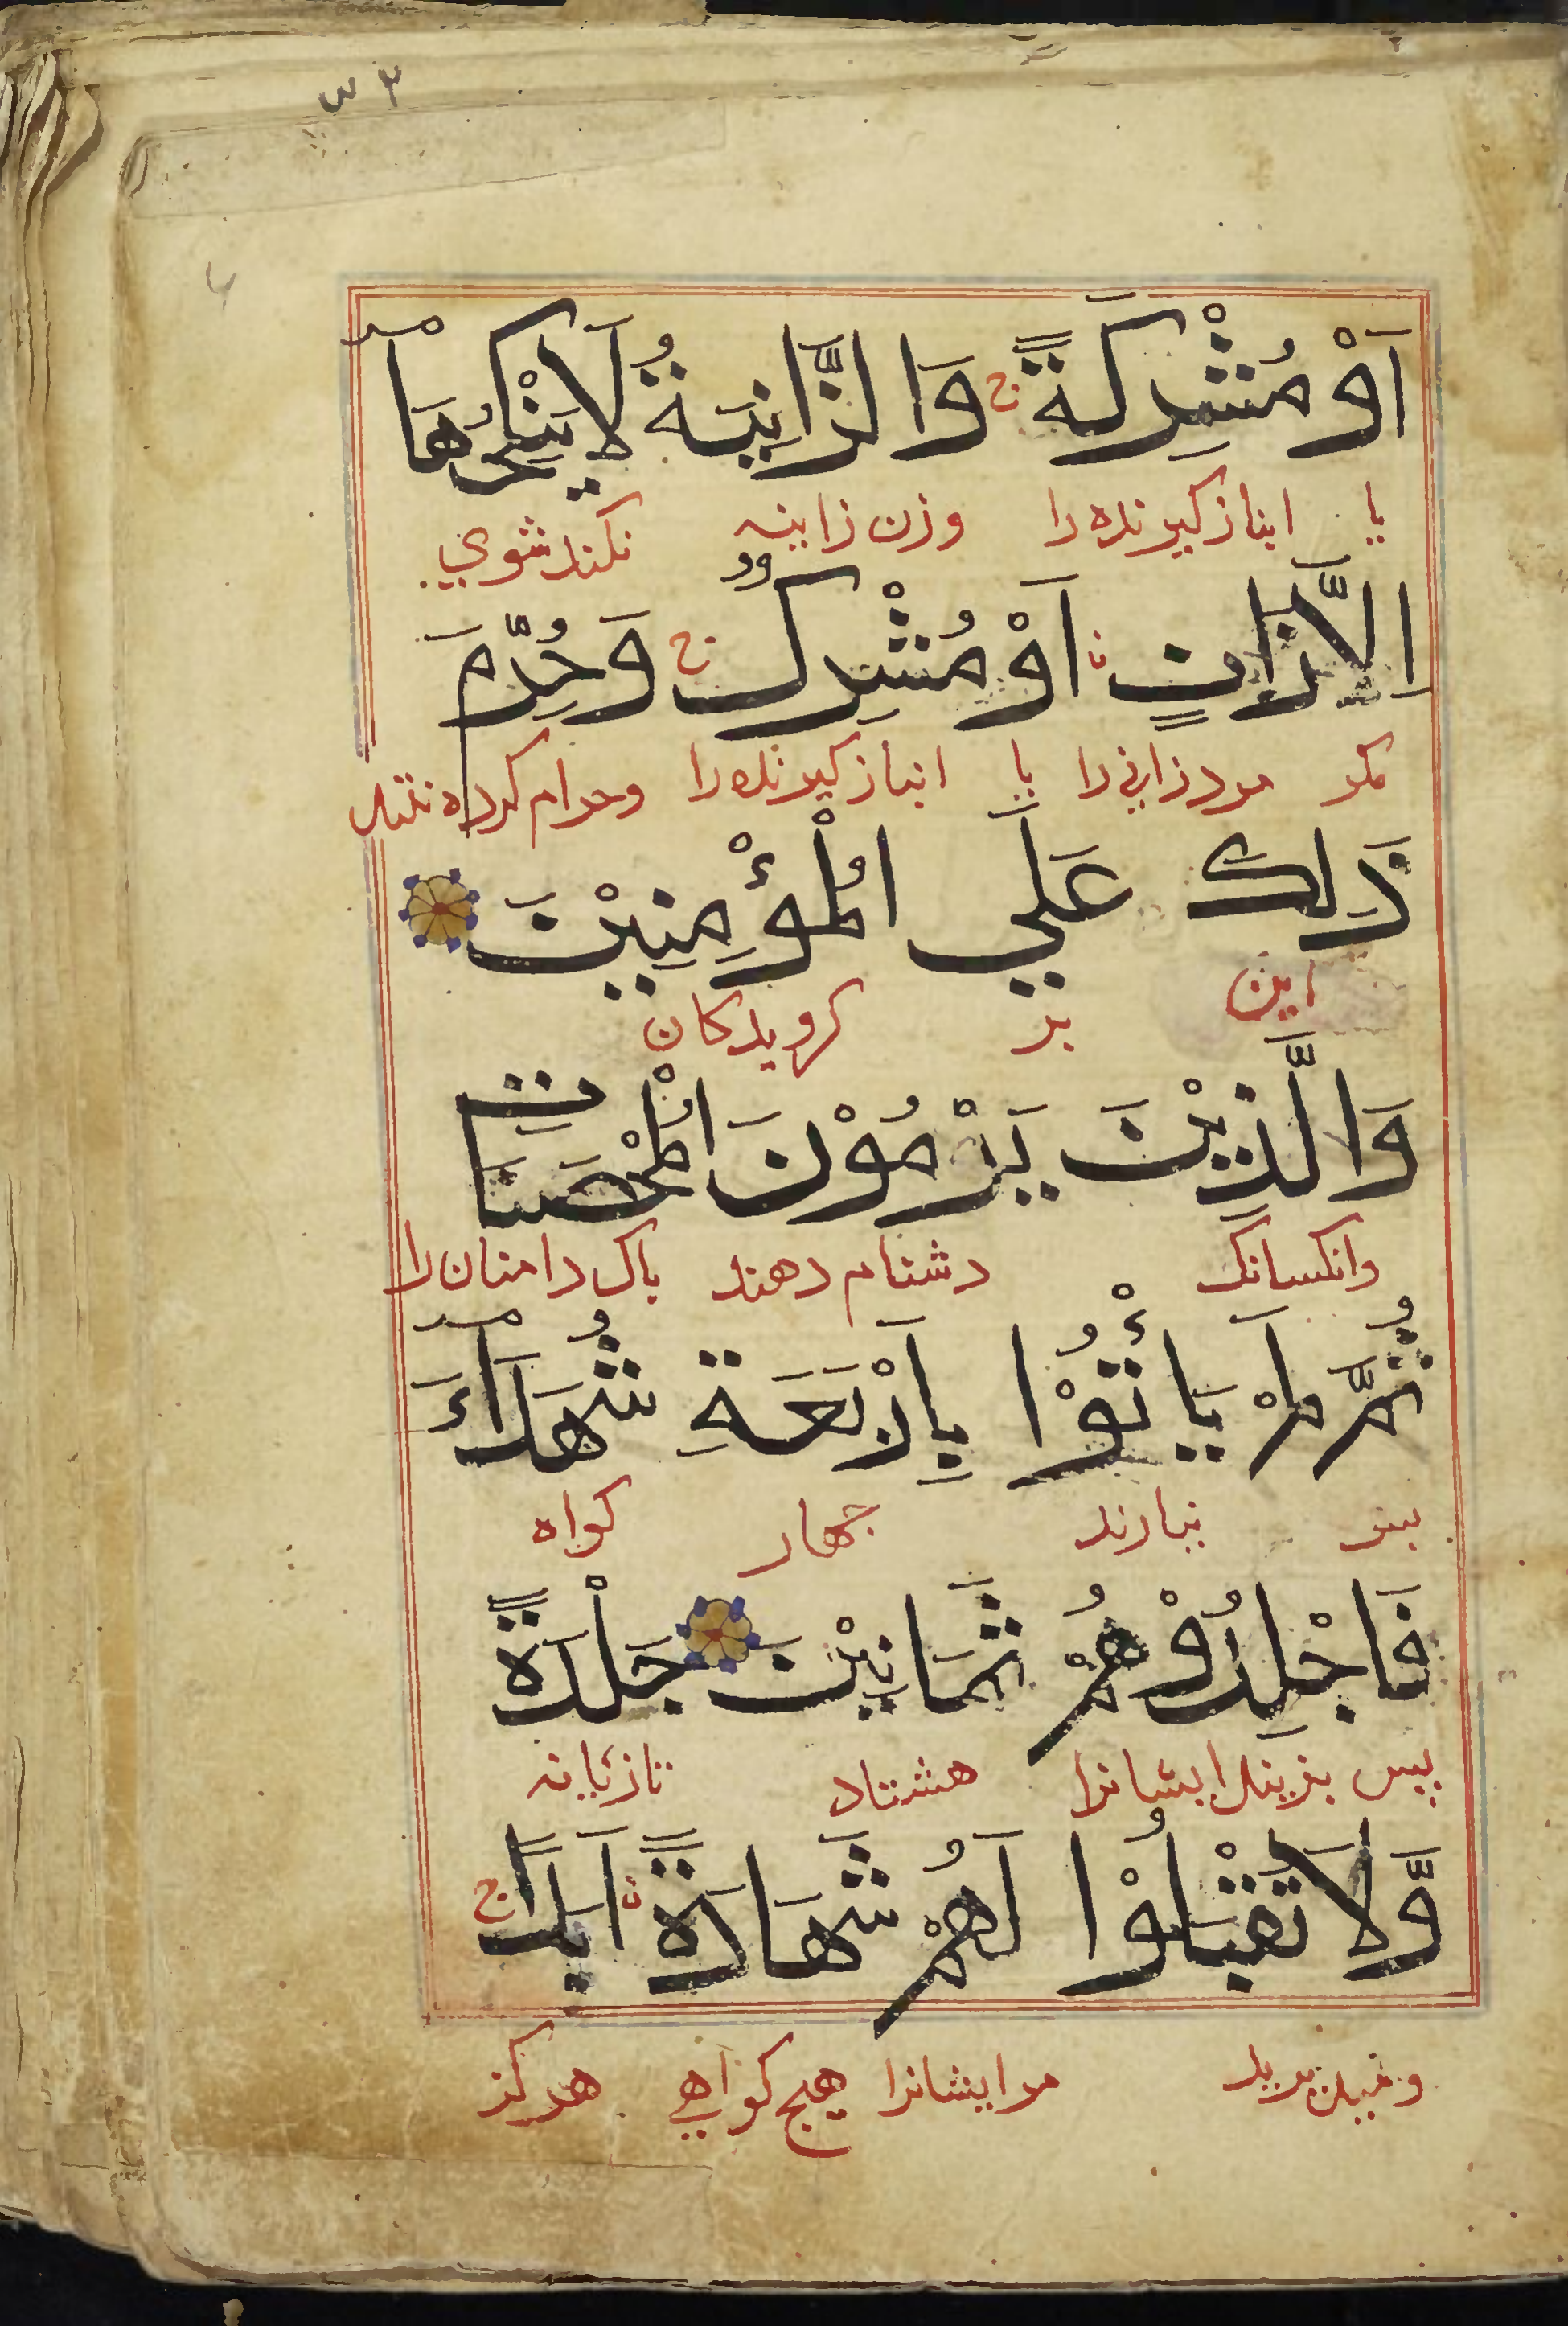 ٣ س
اَوْ مُشْرِكَةً ج وَالزَّانِيَةُ لَا يَنْكِحُهَا
يا انباز كيرنده را وزن زانيه نكند شوي
اِلَّا زَانٍ اَوْ مُشْرِكٌ ج وَحُرِّمَ
مكر مرد زاني را يا انباز كيرنده را وحرام كرده
ذَلِكَ عَلَي الْمُؤْمِنِيْنَ
اين بر كرويدكان
وَالَّذِيْنَ يَرْمُوْنَ الْمُحْصَنَاتِ
وانكسانك دشنام دهند باك دامنان را
ثُمَّ لَمْ يَاْتُوْا بِاَرْبَعَةِ شُهَدَآءَ
نيارند جهار كواه
فَاجْلِدُوْهُمْ ثَمَانِيْنَ جَلْدَةً
پس بزنيد ايشانرا هشتاد تازيانه
وَّلَا تَقْبَلُوْا لَهُمْ شَهَادَةً اَبَدًا ج
مر ايشانرا هيچ كواهي هركز